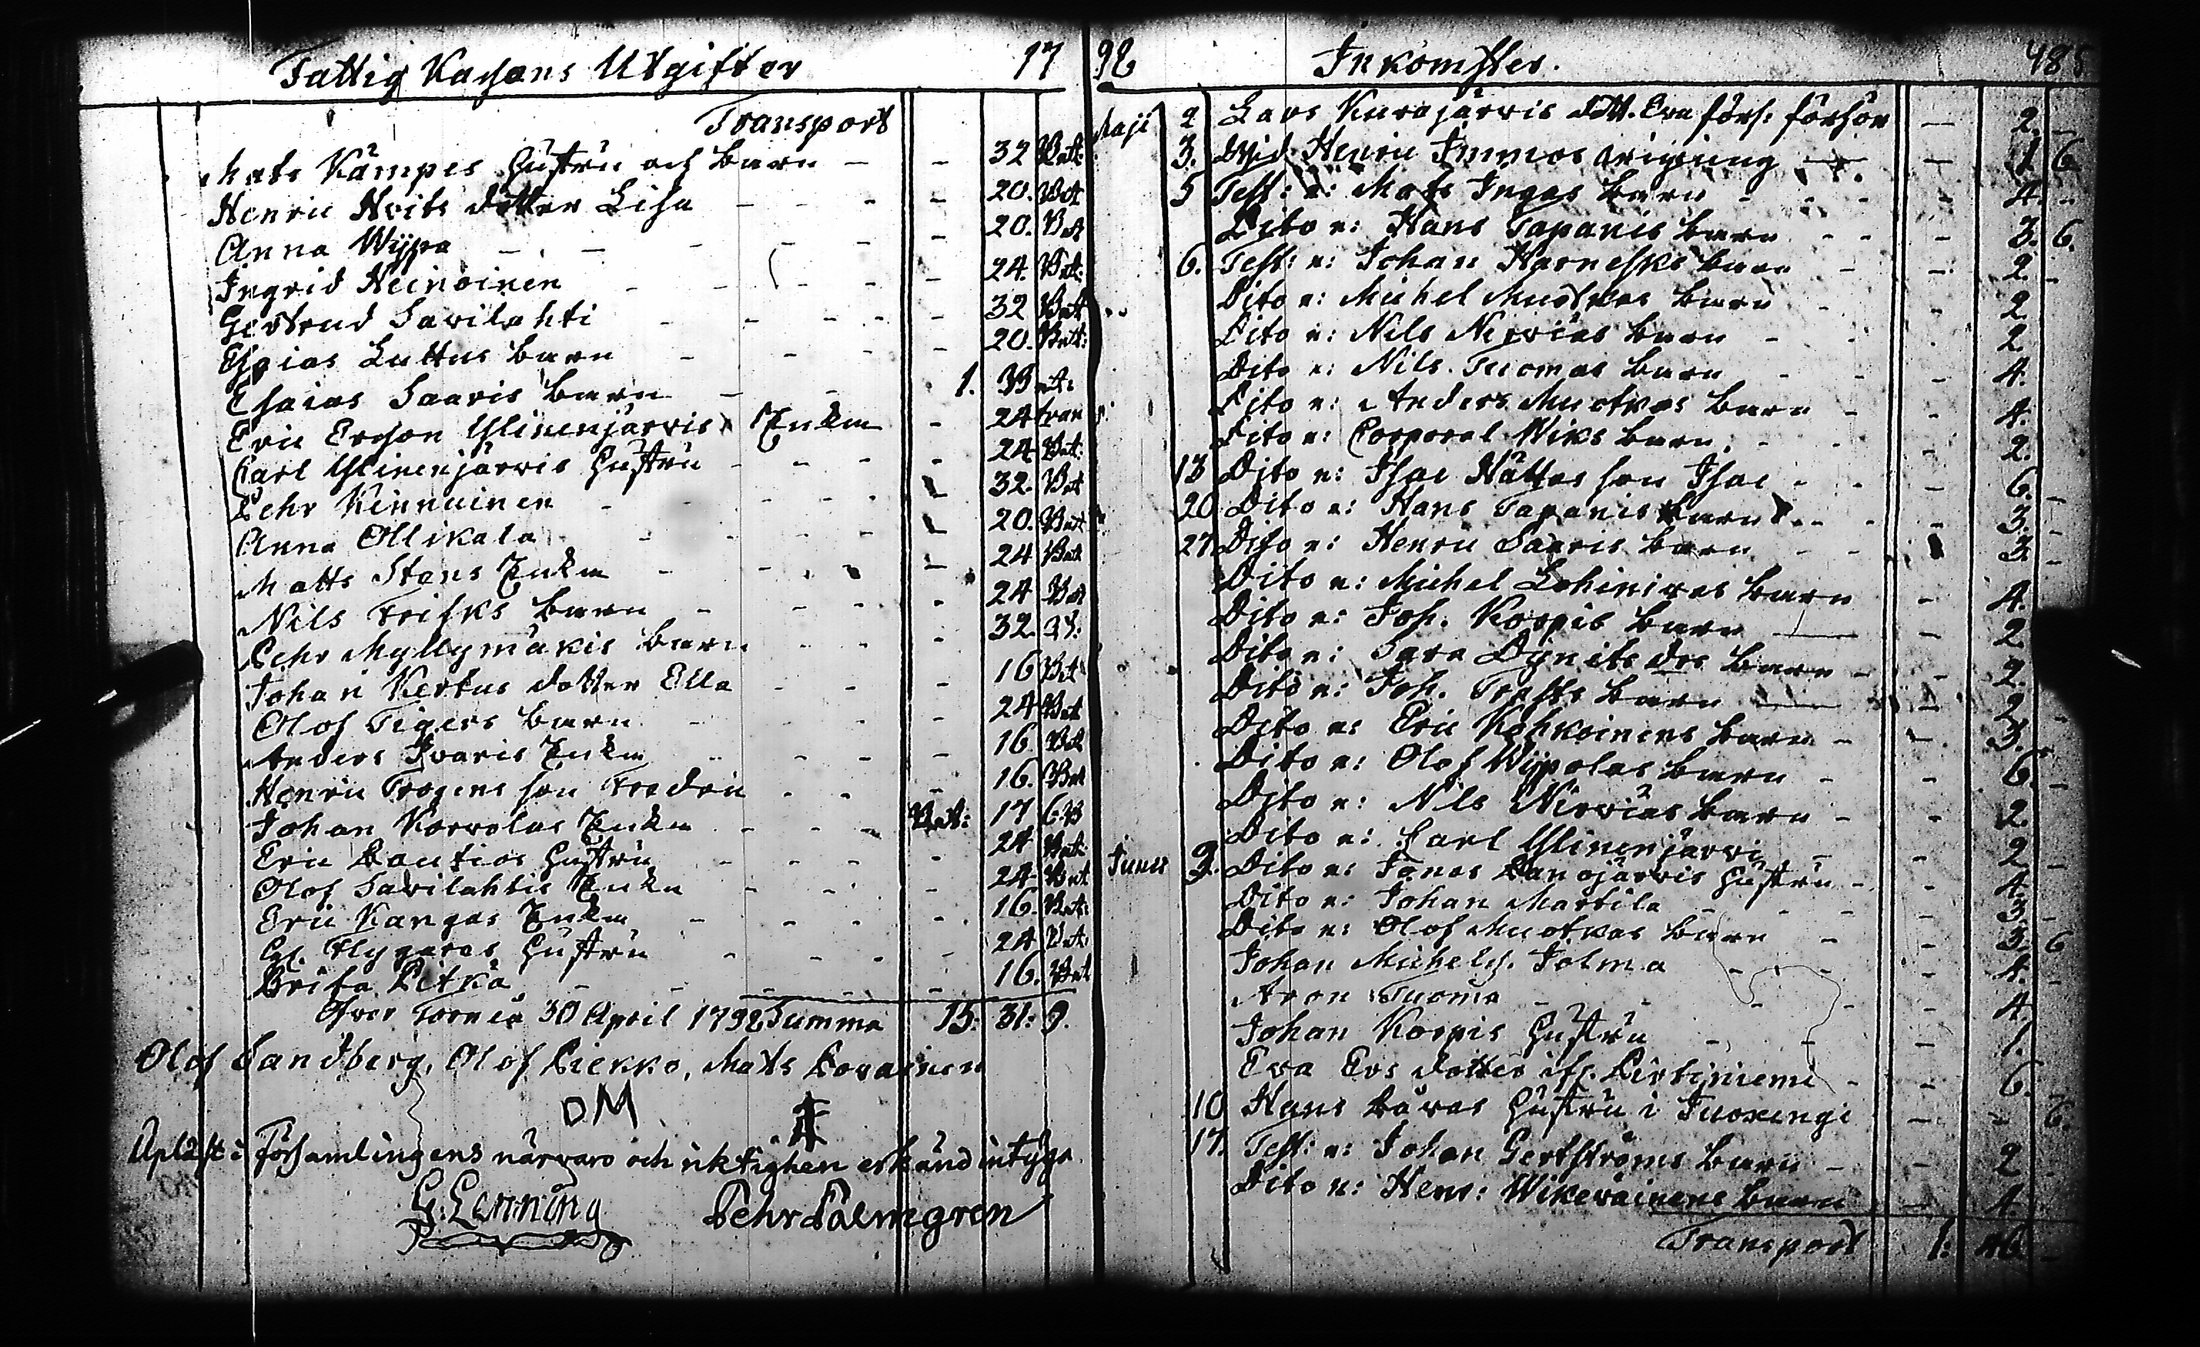 Fattig Kassans Utgifter 17
Transport
Mats Kämpes Hustru och barn - - 32 Bet:
Henric Hvits dotter Lisa - - - - 20. Bet
Anna Wijpa - - - - - 20. Bet
Ingrid Heinoinen - - - - 24. Bet:
Gertrud Savilahti - - - - - 32 Bet
Esaias Luttus barn - - - - 20. Bet:
Esaias Saaris barn - - 1. Bet:
Eric Ersson Ylinenjärvis Enkia - 24
Carl Ylinenjärvis Hustru - - - - 24 Bet:
Pehr Keinoinen - - - - 32. Bet
Anna Ollikala - - - - 20. Bet
Matts Stens Enkia - - - - 24 Bet
Nils Frisks barn - - - - 24 Bet
Pehr Myllymäkis barn - - - 32.
Johan Kertus dotter Ella - - - - 16 Bet
Olof Tigers barn - - - - 24 Bet
Anders Ivaris Enkia - - - - 16 Bet
Henric Trogens son Fredric - - - 16. Bet
Johan Korvolas Enkia - - - Bet: 17 6 B
Eric Lautios Hustru - - - - 24 Bet
Olof Savilahtis Enkia - - - - 24 Bet
Eric Kangas Enkia - - - - 16. Bet:
Flygares Hustru - - - - 24 Bet:
Brita Pitkä - - - - 16. Bet
Öfver Torneå 30 April 1792 Summa 15: 31: 9.
Olof Sandberg, Olof Piekko, Mats Lovainen
DM
Upläst i Församlingens närvaro och riktigheten erkänd intyga
G: Lenning Pehr Palmgren
92 Inkomster. 485
Maji 2 Lars Kurajärvis dott. Eva förs: förhör - 2. -
3. Henric Immos vigning - 1 6
5 Test: e: Mats Ingas barn - 4. -
Dito e: Hans Tapanis barn - - 3. 6.
6. Test: e: Johan Harnesks barn - 2 -
Dito e: Michel Muotkas barn - 2
Dito e: Nils Nivias barn - - 2
Dito e: Nils Tuomas barn - - 4.
Dito e: Anders Muotkas barn - 4.
Dito e: Corporal Wiks barn - 2.
13 Dito e: Isac Hättas son Isac - 6. -
20 Dito e: Hans Tapanis barn - 3. -
27 Dito e: Henric Saaris barn - - 3. -
Dito e: Michel Lohinivas barn - 4.
Dito e: Joh. Korpis barn - 2
Dito e: Sara dr barn - 2
Dito e: Joh. Trasts barn - 2 -
Dito e: Eric Kohkoinens barn - 3.
Dito e: Olof Wijpolas barn - 6. -
Dito e: Nils Nivias barn - 2.
Dito e: Carl Ylinenjärvi - 2 -
Junii 3. Dito e: Jonas Hustru - 4
Dito e: Johan Martila - - - 3. -
Dito e: Olof Muotkas barn - 3. 6
Johan Michels. Jolma - - 4. -
Aron Tuoma - - - 4.
Johan Korpis Hustru - - - 1.
Eva Ers dotter ifr. Pirtiniemi - 6.
10 Hans Hustru i Tuoxengi - - 6.
17. Test: e: Johan Gertströms barn - - 2 -
Dito e: Henr: Wikeväinens barn - 4.
Transport 1: 46 -